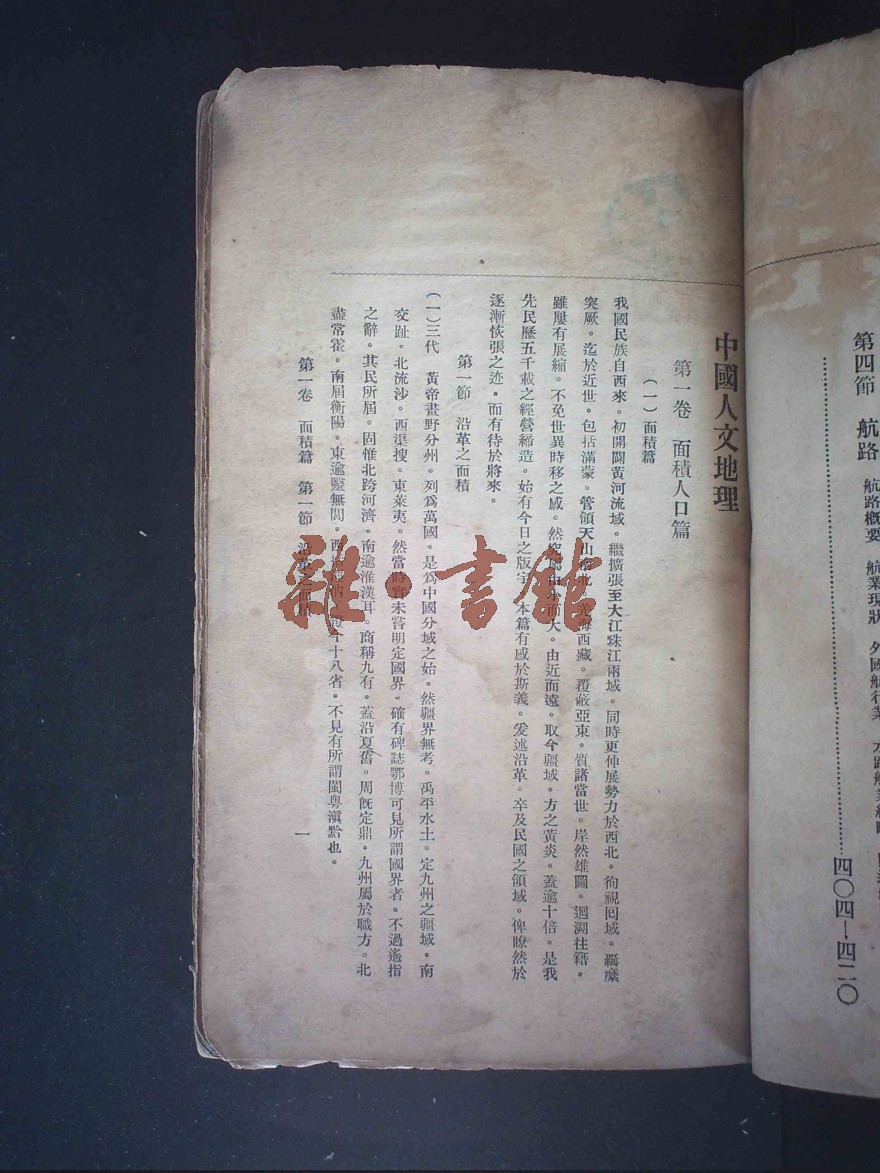 第四節 航路 航路概要 航業現狀 外國航行業
四〇四—四二〇
中國人文地理
第一卷 面積人口篇
(一)面積篇
我國民族自西來。初開闢黃河流域。繼擴張至大江珠江兩域。同時更伸展勢力於西北。徇視回域。羈縻
突厥。迄於近世。包括滿蒙。管領天山南北。海西藏。覆蔽亞東。質諸當世。岸然雄圖。迴溯往籍。
雖屢有展縮。不免世異時移之感。然究屬由小而大。由近而遠。取今疆域。方之黃炎。蓋逾十倍。是我
先民歷五千載之經營締造。始有今日之版宇。本篇有感於斯義。爰述沿革。卒及民國之領域。俾瞭然於
逐漸恢張之迹。而有待於將來。
第一節 沿革之面積
(一)三代 黃帝畫野分州。列爲萬國。是爲中國分域之始。然疆界無考。禹平水土。定九州之疆域。南
交趾。北流沙。西渠搜。東萊夷。然當時實未嘗明定國界。確有碑誌鄂博可見所謂國界者。不過遙指
之辭。其民所屆。固惟北跨河濟。南逾淮漢耳。商稱九有。蓋沿夏舊。周旣定鼎。九州屬於職方。北
盡常霍。南屆衡陽。東逾醫無閭。西 今十八省。不見有所謂閩粵滇黔也。
第一卷 面積篇 第一節 沿革之面積
一
雜·書館